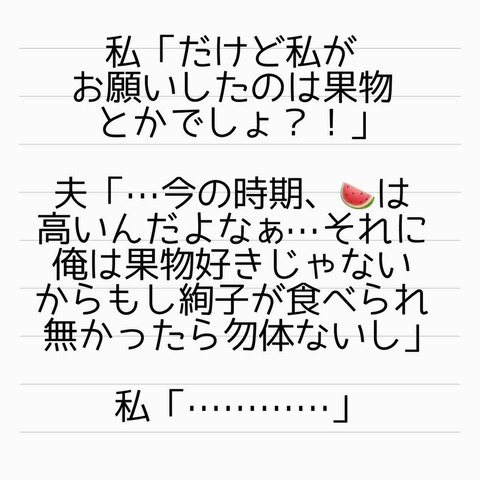 私「だけど私が
お願いしたのは果物
とかでしょ？！」
夫「…今の時期、🍉は
高いんだよなぁ…それに
俺は果物好きじゃない
からもし絢子が食べられ
無かったら勿体ないし」
私「…………」